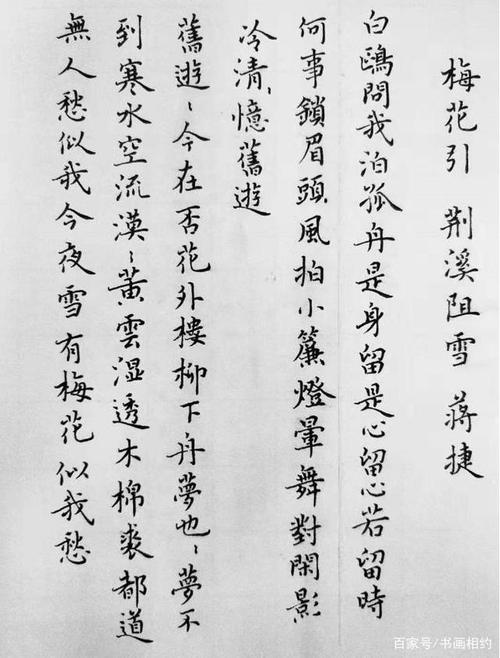 梅花引 荆溪阻雪 蒋捷
白鷗問我泊孤舟是身留是心留心若留時
何事鎖眉頭風拍小簾燈暈舞對閑影
冷清、憶舊遊
舊遊、今在否花外樓柳下舟夢也、夢不
到寒水空流漠、黃雲湿透木棉裘都道
無人愁似我今夜雪有梅花似我愁
百家号/书画相约